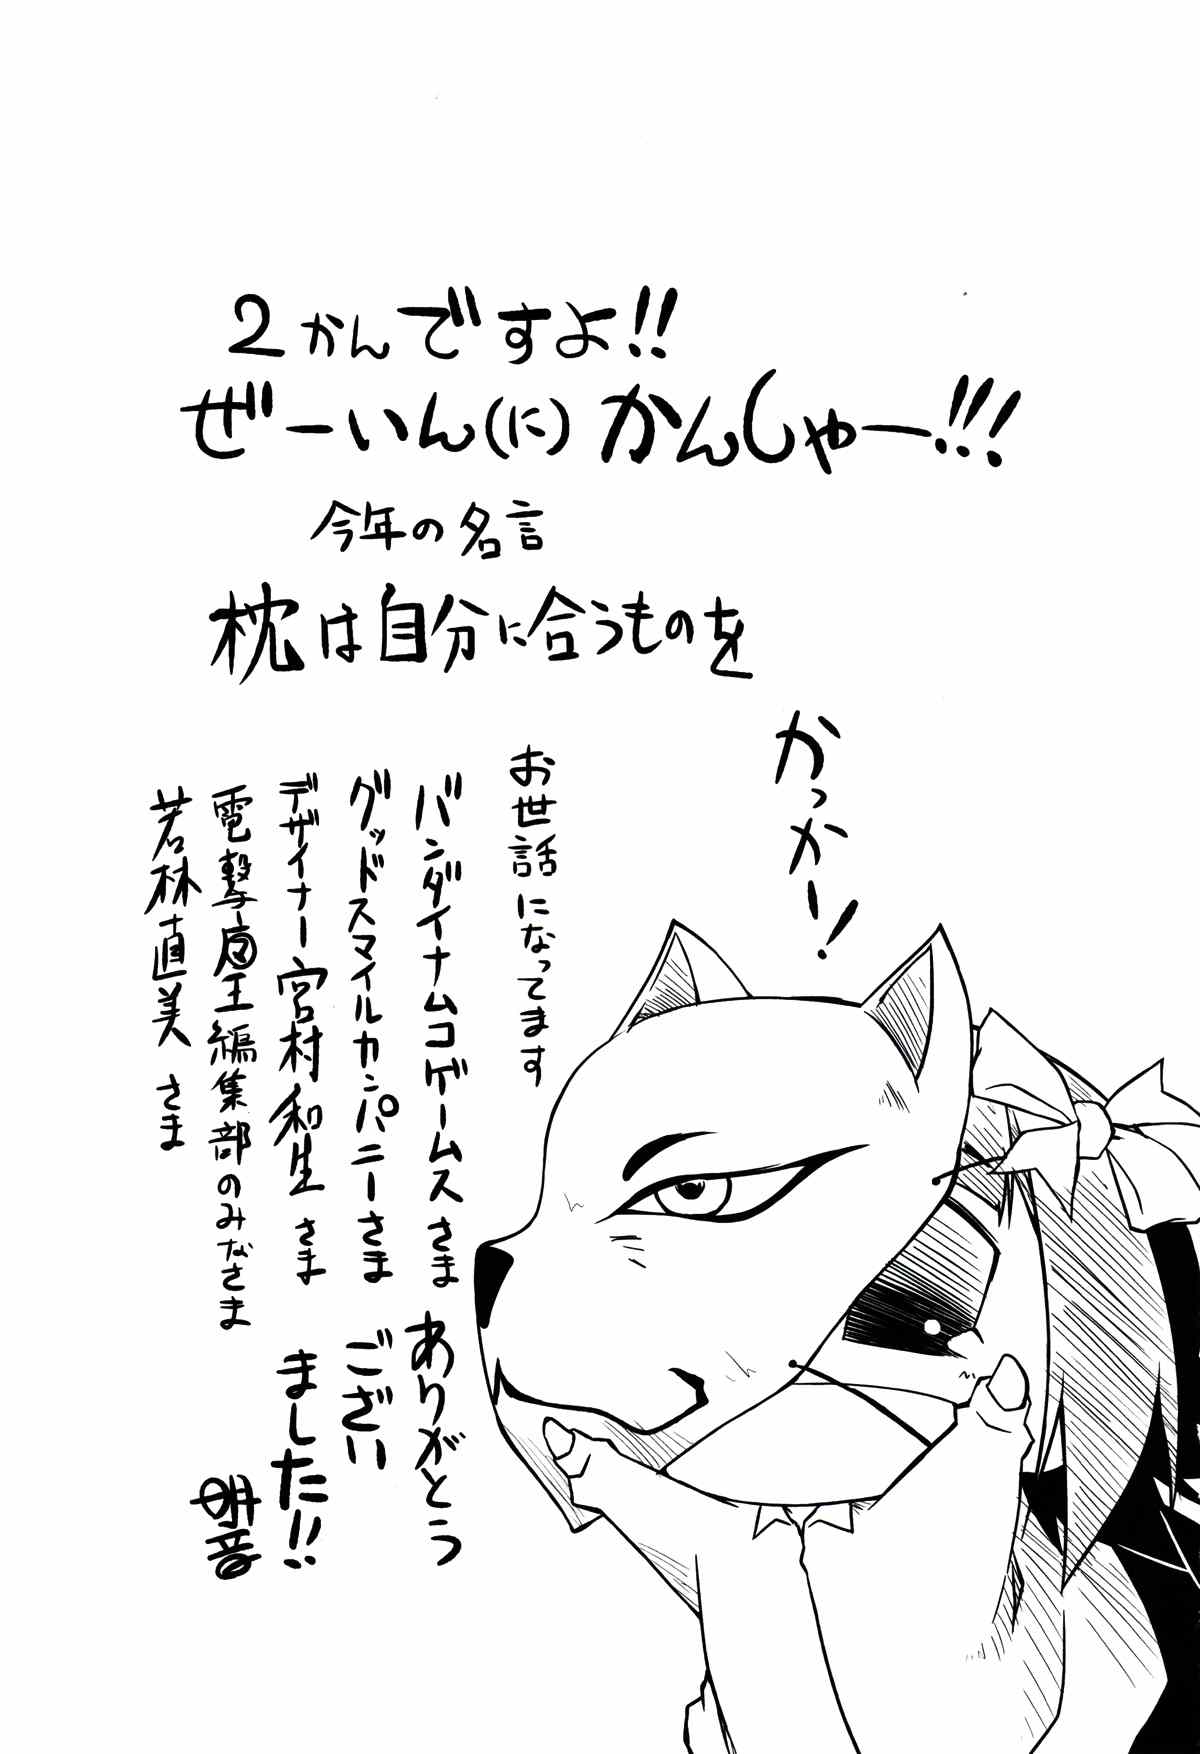 2かんですよ!!
ぜーいん(に)かんしゃー!!!
今年の名言
枕は自分に合うものを
かっかー!
お世話になってます
バンダイナムコゲームスさま
グッドスマイルカンパニーさま
デザイナー宮村和生さま
電撃マ王編集部のみなさま
若林直美さま
ありがとう
ござい
ました!!
明音